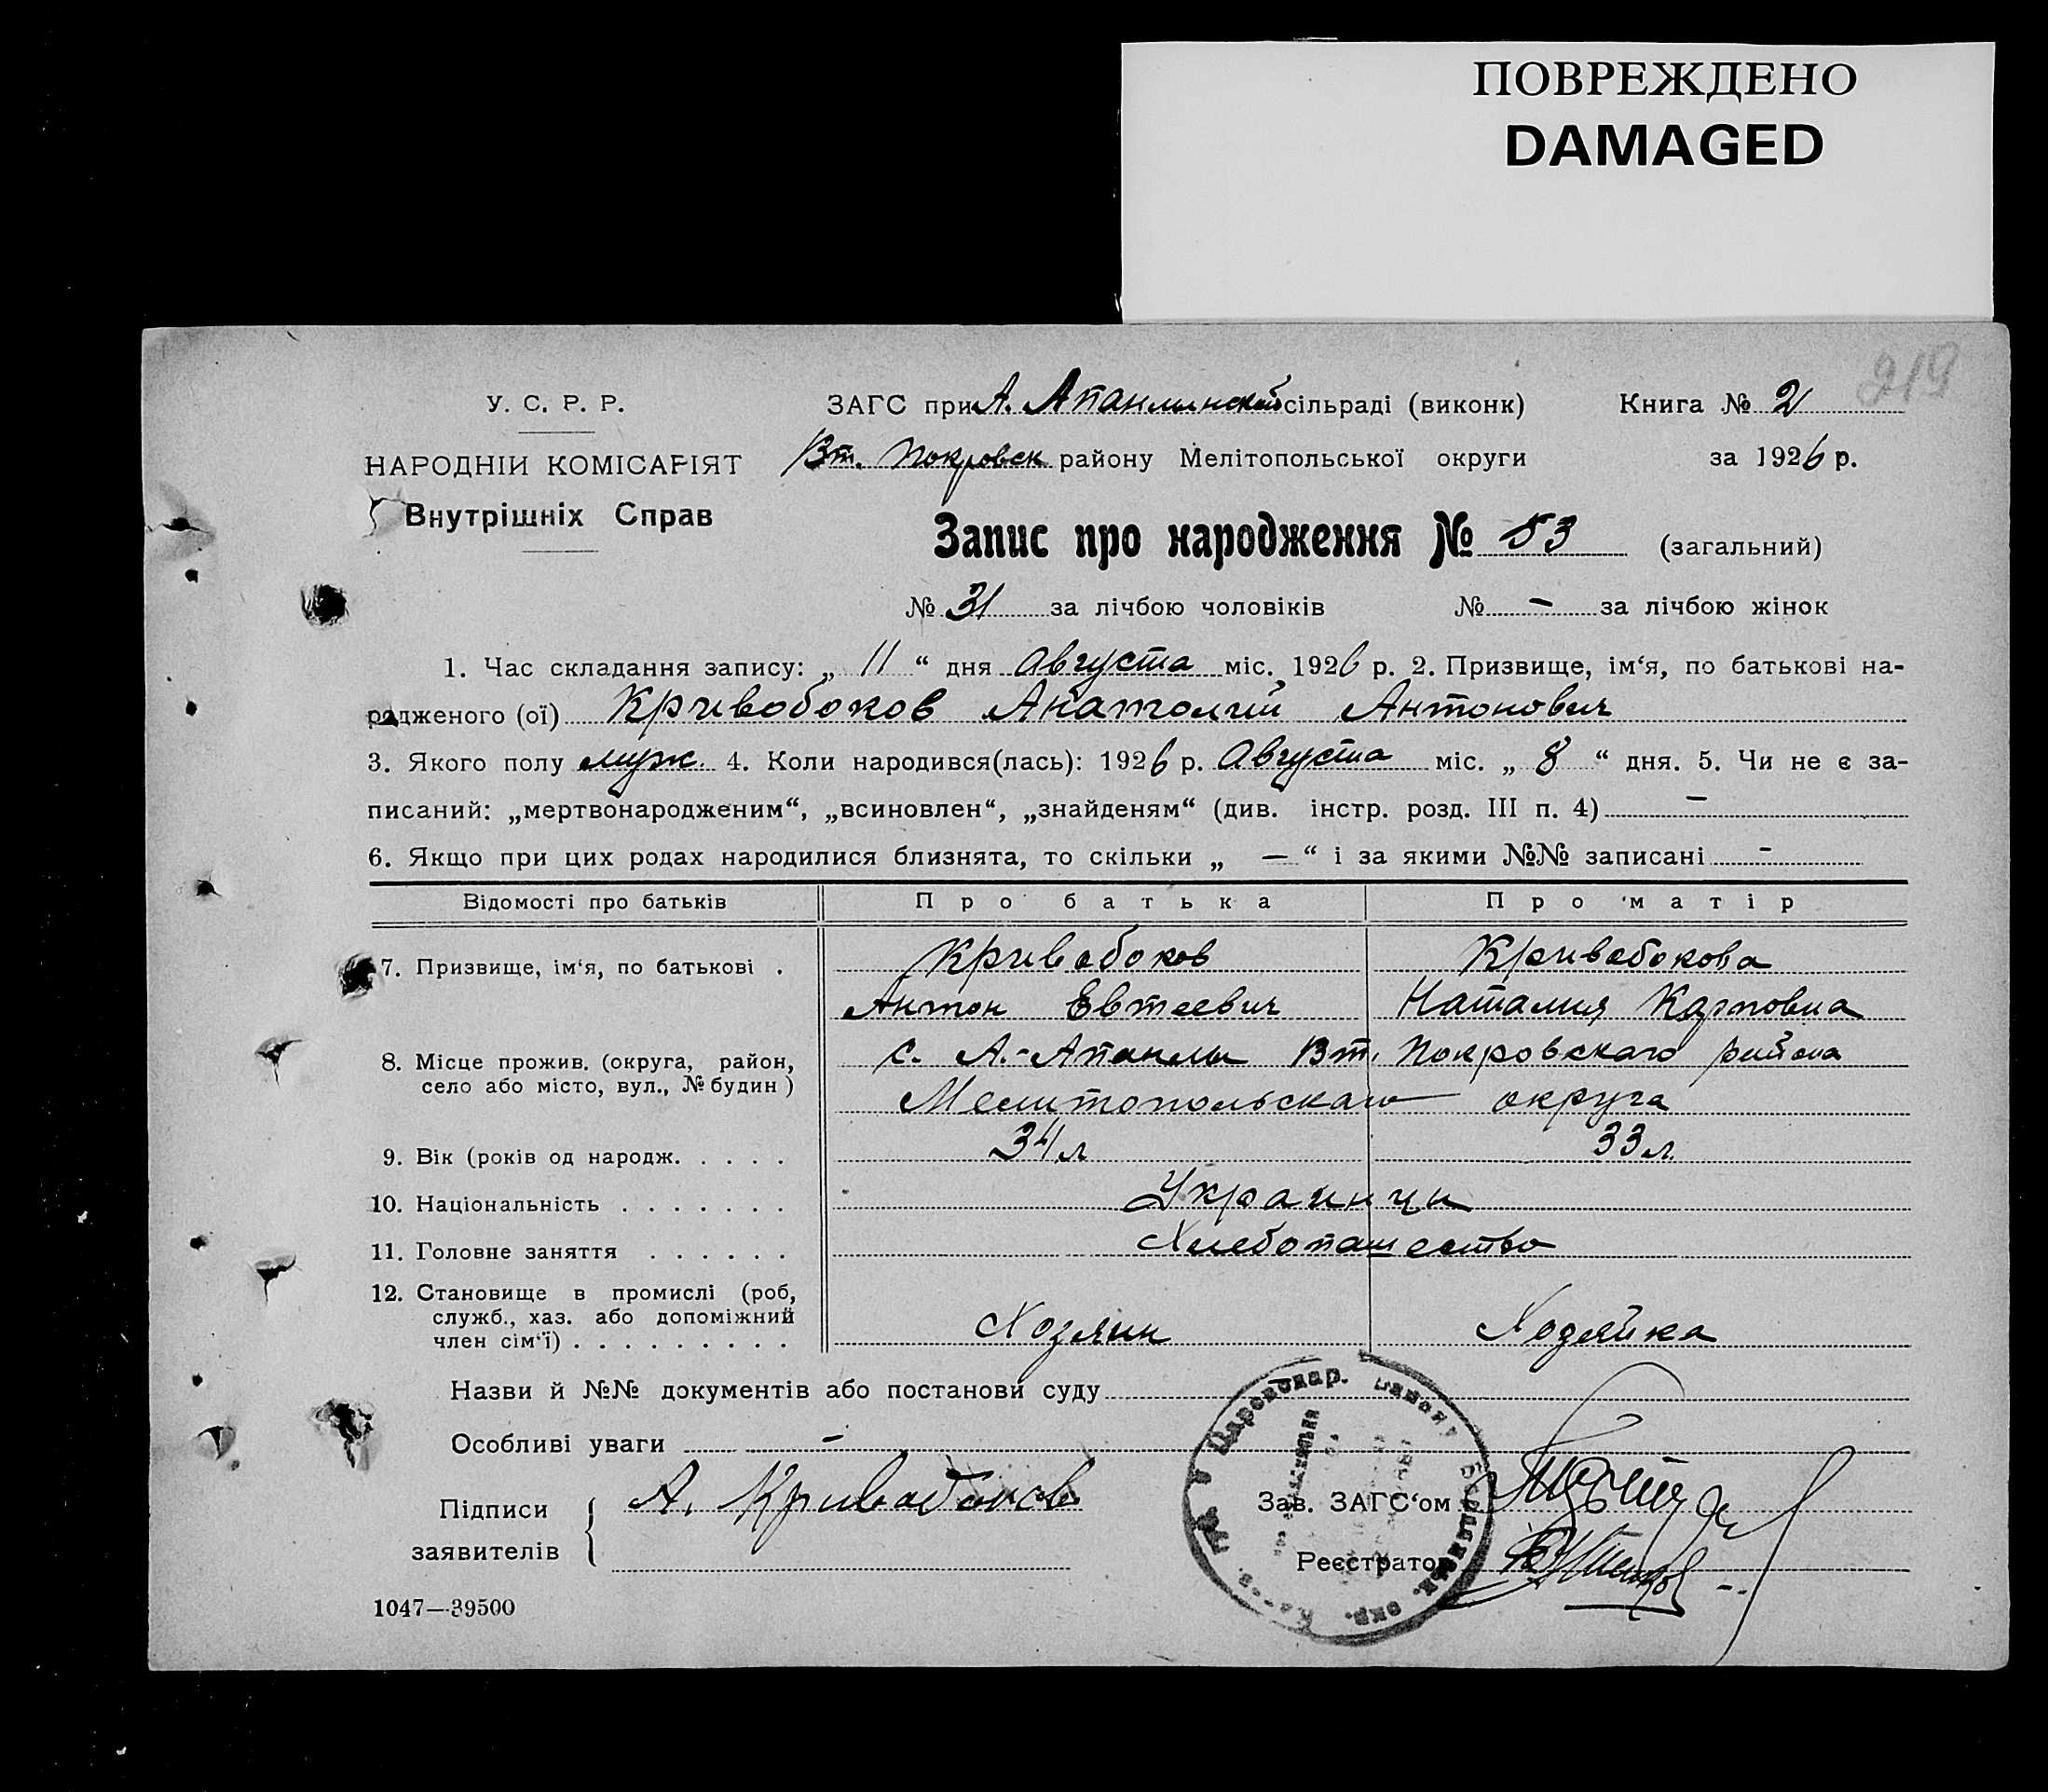 ПОВРЕЖДЕНО
DAMAGED
219
У. С. Р. Р.
ЗАГС при А. Апанлинской сільраді (виконк)
Книга № 2
НАРОДНІЙ КОМІСАРІЯТ
Вт. Покровск району Мелітопольської округи
за 1926 р.
Внутрішніх Справ
Запис про народження № 53 (загальний)
№ 31 за лічбою чоловіків № - за лічбою жінок
1. Час складання запису: „ 11 “ дня Августа міс. 1926 р. 2. Призвище, ім‘я, по батькові на-
родженого (ої) Кривобоков Анатолий Антонович
3. Якого полу муж. 4. Коли народився(лась): 1926 р. Августа міс. „ 8 “ дня. 5. Чи не є за-
писаний: „мертвонародженим“, „всиновлен“, „знайденям“ (див. інстр. розд. III п. 4) -
6. Якщо при цих родах народилися близнята, то скільки „ — “ і за якими №№ записані -
Відомості про батьків
Про батька
Про матір
7. Призвище, ім‘я, по батькові .
Кривобоков
Кривобокова
Антон Евтеевич
Наталия Карповна
8. Місце прожив. (округа, район,
село або місто, вул., № будин )
с. А.-Апанлы Вт. Покровскаго района
Мелитопольскаго округа
9. Вік (років од народж. . . . .
34 л
33 л.
10. Національність . . . . . . .
Украинцы
11. Головне заняття . . . . . .
Хлебопашество
12. Становище в промислі (роб,
служб., хаз. або допоміжний
член сім‘ї) . . . . . . . . .
Хозяин
Хозяйка
Назви й №№ документів або постанови суду
Особливі уваги -
Підписи
заявителів
А. Кривобоков
Зав. ЗАГС‘ом
Реєстратор
1047—39500